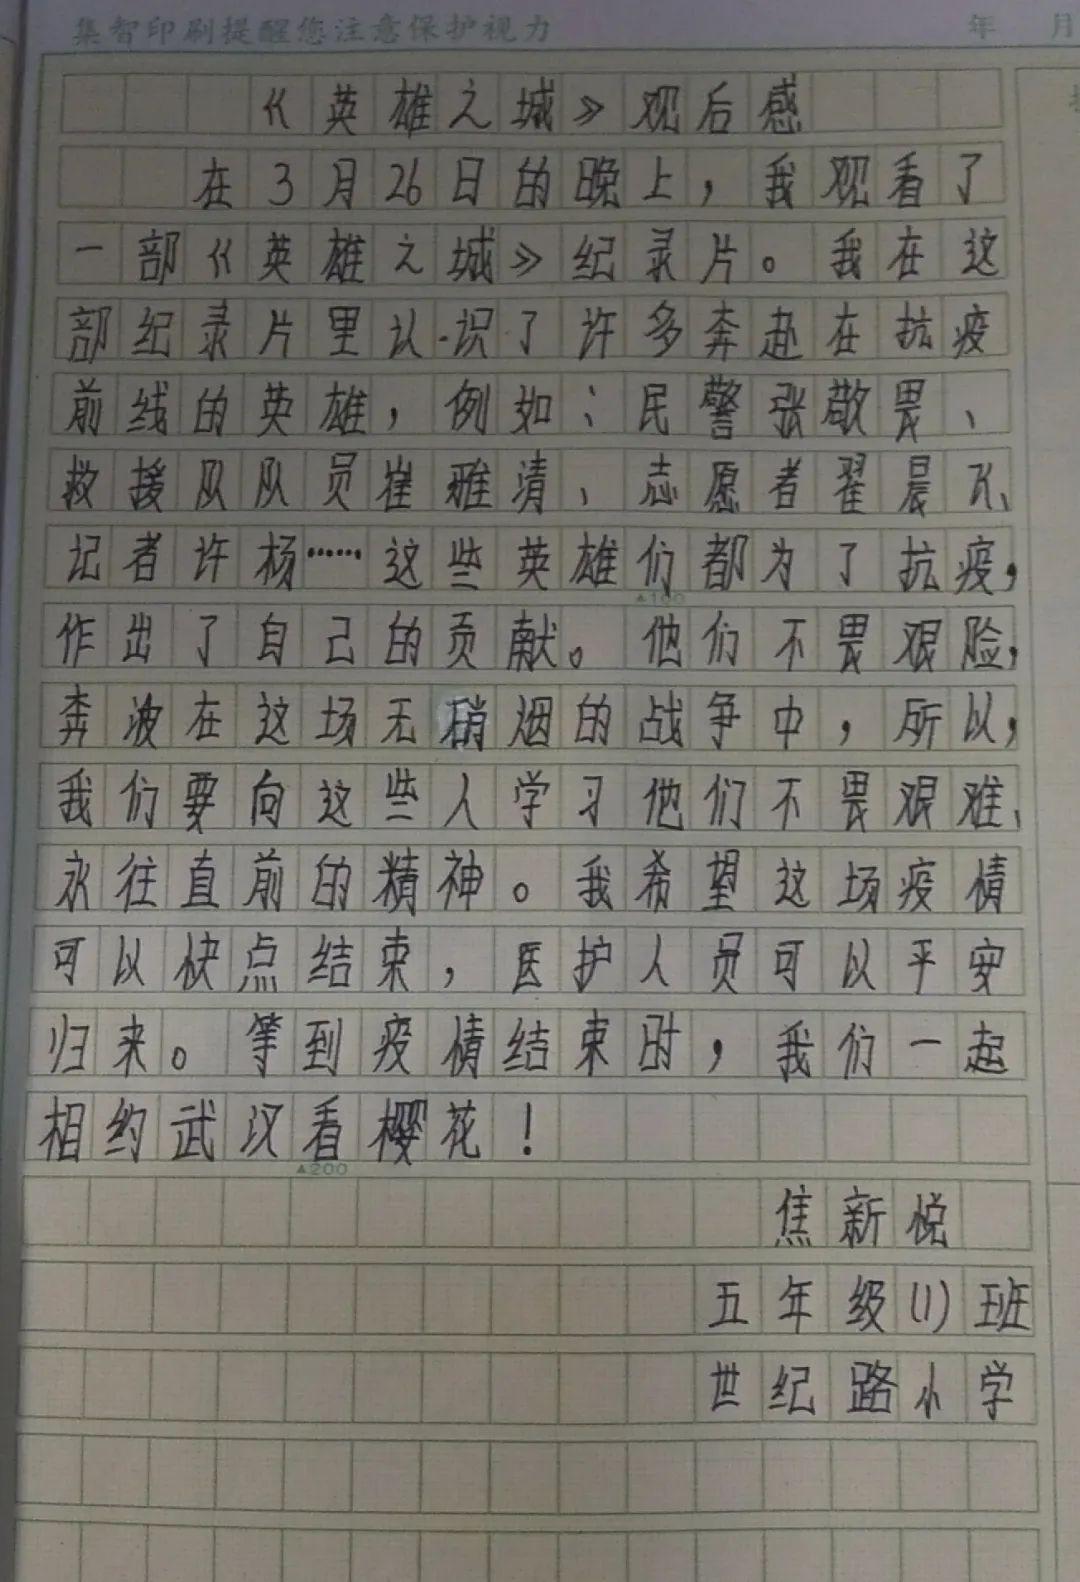 集智印刷提醒您注意保护视力 年 月
《英雄之城》观后感
在3月26日的晚上，我观看了
一部《英雄之城》纪录片。我在这
部纪录片里认识了许多奔赴在抗疫
前线的英雄，例如：民警张敬畏、
救援队队员崔雅清、志愿者翟晨飞、
记者许杨……这些英雄们都为了抗疫，
▲100
作出了自己的贡献。他们不畏艰险，
奔波在这场无硝烟的战争中，所以，
我们要向这些人学习他们不畏艰难、
永往直前的精神。我希望这场疫情
可以快点结束，医护人员可以平安
归来。等到疫情结束时，我们一起
相约武汉看樱花！
▲200
焦新悦
五年级(1)班
世纪路小学